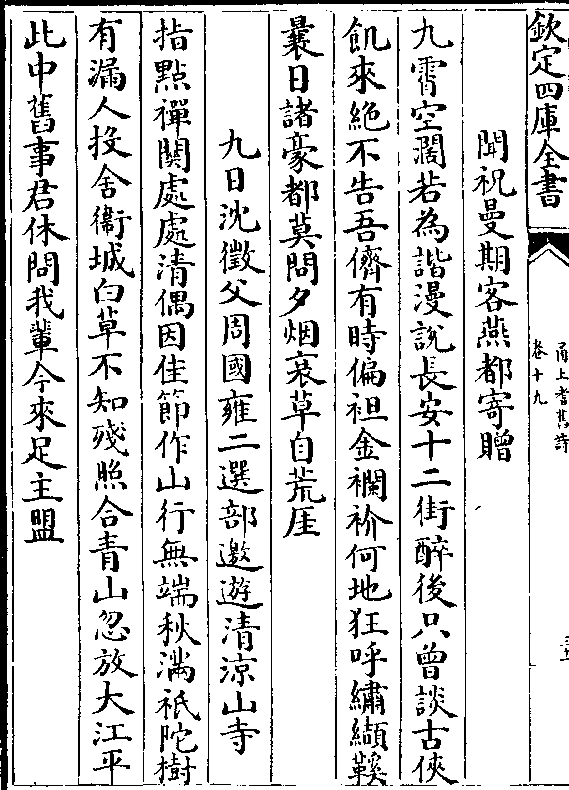 欽定四庫全書
甬上耆舊詩
卷十九
聞祝曼期客燕都寄贈
九霄空濶若為諧漫說長安十二街醉後只曾談古俠
飢來絶不告吾儕有時偏袒金襴衸何地狂呼繡纈鞵
曩日諸豪都莫問夕烟衰草自荒厓
九日沈徵父周國雍二選部邀遊清涼山寺
指點禪關處處清偶因佳節作山行無端秋滿祇陀樹
有漏人投舍衞城白草不知殘照合青山忽放大江平
此中舊事君休問我輩今來足主盟